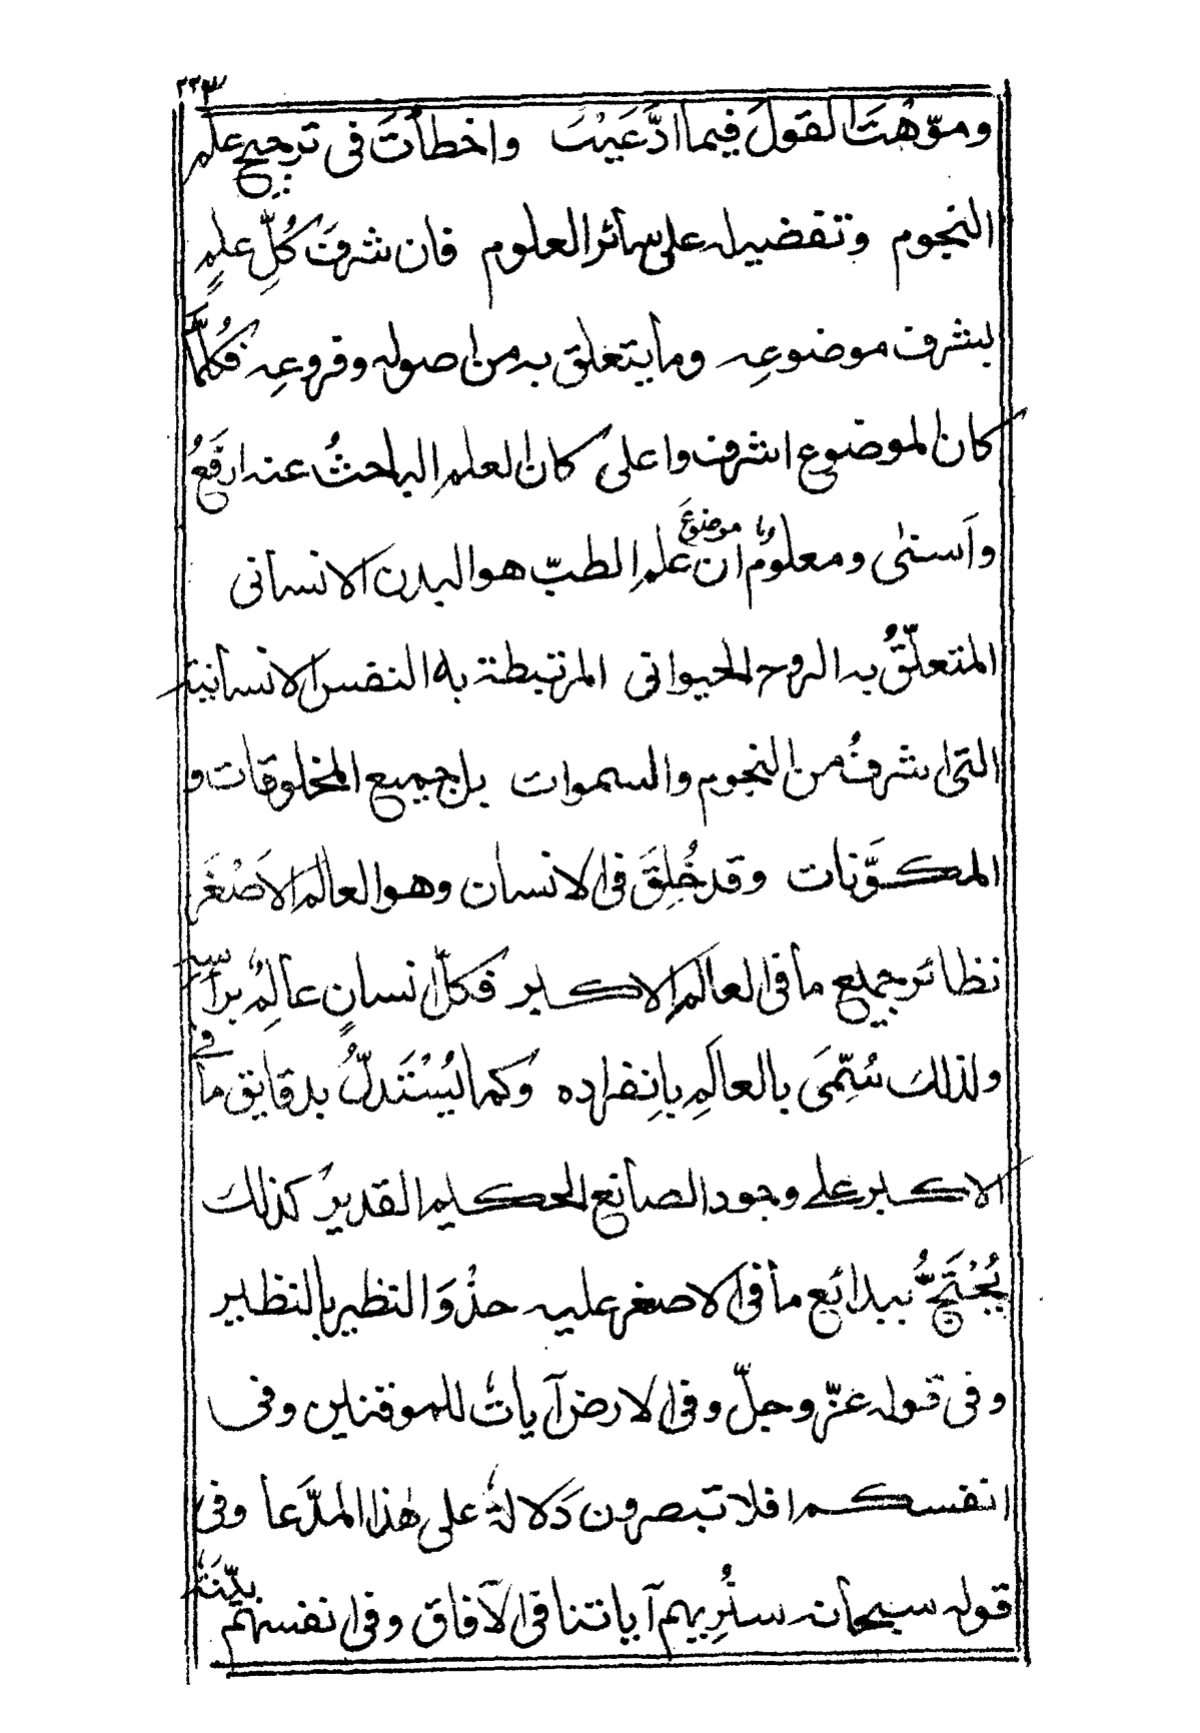 ٢٢٣
وموّهْتَ القولَ فيما ادَّعَيْتَ واخطأتَ في ترجيح علم
النجوم وتفضيله على سائر العلوم فان شرفَ كُلِّ علمٍ
بشرف موضوعِه وما يتعلق به من اصوله وفروعِه فكُلَّما
كان الموضوع اشرف واعلى كان العلم الباحثُ عنه ارفَعُ
وأسنى ومعلومٌ ان موضوعَ علمِ الطبّ هو البدن الانسانى
المتعلّقُ به الروح الحيوانى المرتبطة به النفس الانسانية
التى اشرفُ من النجوم والسموات بل جميع المخلوقات و
المكوَّنات وقد خُلِقَ في الانسان وهو العالم الاَصْغَر
نظائر جميع ما في العالَم الاكبر فكلّ انسانٍ عالِمٌ برأسه
ولذلك سُمِّىَ بالعالَمِ بانِفراده وكما يُسْتَدلُّ بدقايق ما في
الاكبر على وجود الصانع الحكيم القدير كذلك
يُحْتَجُّ ببدائع ما في الاصغر عليه حذْوَ النظير بالنظير
وفي قوله عزّ وجلّ وفي الارض آياتٌ للموقنين وفى
انفسكم افلا تبصرون دَلالةٌ على هٰذا المدَّعا وفى
قوله سبحانه سنُرِيهم آياتنا في الآفاق وفي انفسهم بيّنَةٌ